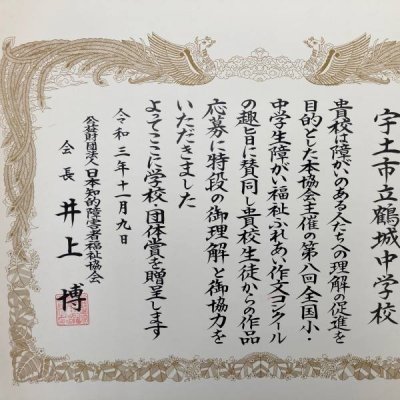 宇土市立鶴城中学校
貴校は障がいのある人たちへの理解の促進を
目的とした本協会主催の第八回全国小・
中学生障がい福祉ふれあい作文コンクール
の趣旨に賛同し貴校生徒からの作品
応募に特段の御理解と御協力を
いただきました
よってここに学校団体賞を贈呈します
令和三年十一月九日
公益財団法人日本知的障害者福祉協会
会長 井上博